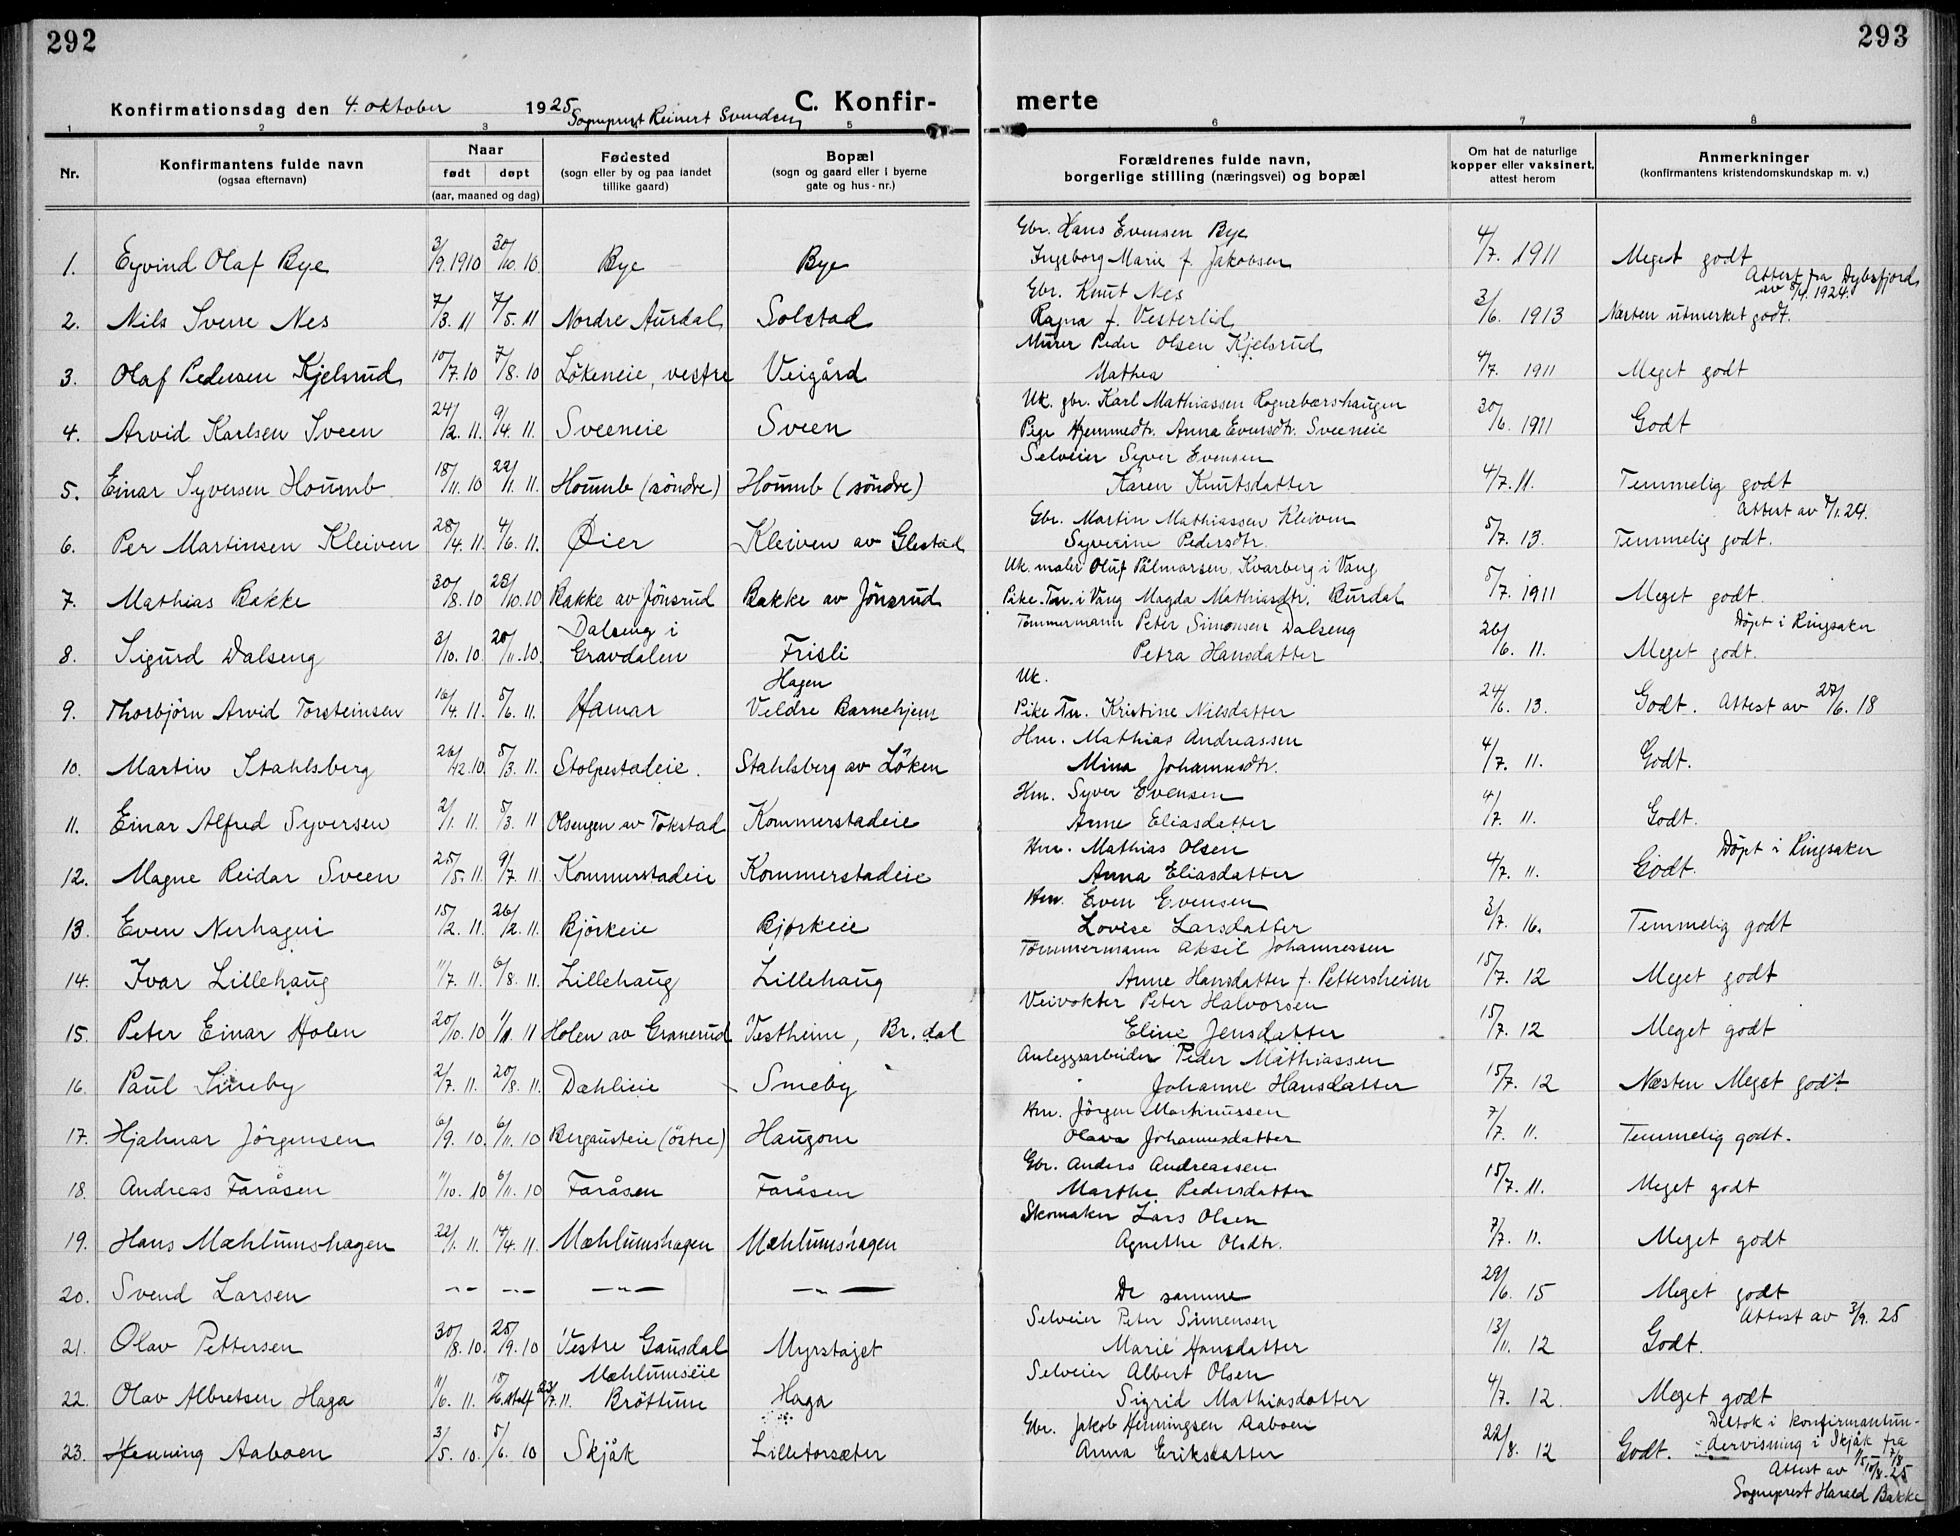 292
293
Konfirmationsdag den 4. oktober 1925
C. Konfir-
merte
Sogneprest Reinert Svendsen
1 2 3 5 6 7 8
Nr.
Konfirmantens fulde navn
(ogsaa efternavn)
Naar
født døpt
(aar, maaned og dag)
Fødested
(sogn eller by og paa landet
tillike gaard)
Bopæl
(sogn og gaard eller i byerne
gate og hus-nr.)
Forældrenes fulde navn,
borgerlige stilling (næringsvei) og bopæl
Om hat de naturlige
kopper eller vaksinert,
attest herom
Anmerkninger
(konfirmantens kristendomskundskap m. v.)
Gbr. Hans Evensen Bye
1. Eyvind Olaf Bye 3/9. 1910 30/10. 10 Bye Bye Ingeborg Marie f. Jakobsen 4/7. 1911 Meget godt
Attest fra
av 8/4. 1924.
Gbr. Knut Nes
2. Nils Sverre Nes 7/3. 11 7/5. 11 Nordre Aurdal Solstad Ragna f. Vesterlid 3/6. 1913 Næsten utmerket godt.
Murer Peder Olsen Kjelsrud
3. Olaf Pedersen Kjelsrud 10/7. 10 7/8. 10 Lökeneie, vestre Veigård Mathea 4/7. 1911 Meget godt
Uk. gbr. Karl Mathiassen Rognebærshaugen
4. Arvid Karlsen Sveen 24/2. 11. 9/4. 11. Sveeneie Sveen Pige Hjemmedtr. Anna Evensdtr. Sveeneie 30/6. 1911 Godt
Selveier Syver Evensen
5. Einar Syversen Houmb 18/11. 10 22/1. 11. Houmb (söndre) Houmb (söndre) Karen Knutsdatter 4/7. 11. Temmelig godt
Gbr. Martin Mathiassen Kleiven
Attest av
6. Per Martinsen Kleiven 28/4. 11. 4/6. 11. Øier Kleiven av Glestad Syverine Pedersdtr. 5/7. 13. Temmelig godt.
Uk. maler Oluf Pálmarsen, Kvarberg i Vang
7. Mathias Bakke 30/8. 10 23/10. 10 Bakke av Jönsrud Bakke av Jönsrud Pike. Tn. i Vang Magda Mathiasdtr. Burdal 5/7. 1911 Meget godt.
Tømmermann Peter Simonsen Dalseng
Døpt i Ringsaker
8. Sigurd Dalseng 3/10. 10 20/11. 10. Dalseng i
Gravdalen Frisli Petra Hansdatter 26/6. 11. Meget godt.
Uk.
9. Thorbjörn Arvid Torsteinsen 16/4. 11. 5/6. 11. Hamar Hagen
Veldre Barnehjem Pike Tn. Kristine Nilsdatter 24/6. 13. Godt. Attest av 27/6. 18
Hm. Mathias Andreassen
10. Martin Stahlsberg 26/12. 10 5/3. 11. Stolpestadeie. Stahlsberg av Löken Mina Johannesdtr. 4/7. 11. Godt.
Hm. Syver Evensen
11. Einar Alfred Syversen 2/1. 11. 5/3. 11 Olsengen av Tokstad Kommerstadeie Anne Eliasdatter 4/7. 11. Godt.
Hm. Mathias Olsen
Döpt i Ringsaker
12. Magne Reidar Sveen 25/5. 11. 9/7. 11 Kommerstadeie Kommerstadeie Anna Eliasdatter 4/7. 11. Godt.
Hm. Even Evensen
13. Even Nerhagen 15/2. 11. 26/2. 11. Björkeie Bjørkeie Lovise Larsdatter 3/7. 16. Temmelig godt
Tömmermann Aksil Johannessen
14. Ivar Lillehaug 11/7. 11. 6/8. 11 Lillehaug Lillehaug Anne Hansdatter f. Pettersheim 15/7. 12 Meget godt
Veivokter Peter Halvorsen
15. Peter Einar Holen 20/10. 10 1/1. 11 Holen av Granerud Vestheim, Br. dal Eline Jensdatter 15/7. 12 Meget godt
Anleggsarbeider Peder Mathiassen
16. Paul Smeby 2/7. 11. 20/8. 11. Dæhlieie Smeby Johanne Hansdatter 15/7. 12 Næsten Meget godt
Hm. Jörgen Martinussen
17. Hjalmar Jörgensen 6/9. 10. 6/11. 10 Bergausteie (östre) Haugom Olava Johannesdatter 7/7. 11. Temmelig godt.
Gbr. Anders Andreassen
18. Andreas Faråsen 11/10. 10 6/11. 10 Faråsen Faråsen Marthe Pedersdatter 15/7. 11. Meget godt
Skomaker Lars Olsen
19. Hans Mæhlumshagen 22/1. 11. 14/4. 11. Mæhlumshagen Mæhlumshagen Agnethe Olsdtr. 7/7. 11. Meget godt
20. Svend Larsen -"- -"- -"- -"- De samme 29/6. 15 Meget godt
Selveier Peter Simensen
Attest av 3/9. 25
21. Olav Pettersen 30/8. 10. 25/9. 10 Vestre Gausdal Myrstajet Marie Hansdatter 13/11. 12 Godt.
Selveier Albert Olsen
22. Olav Albretsen Haga 11/6. 11. 18/6. stadf 23/7. 11. Mæhlumseie
Bröttum Haga Sigrid Mathiasdatter 4/7. 12. Meget godt
Gbr. Jakob Henningsen Aaboen
23. Henning Aaboen 3/5. 10. 5/6. 10 Skjåk Lilletorsæter Anna Eriksdatter 22/8. 12 Godt.
Deltok i konfirmantun-
dervisning i Skjåk fra
Attest av
Sogneprest Harald Bakke